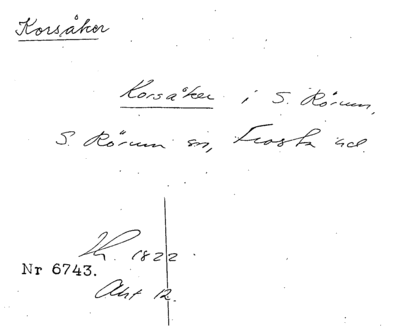 Korsåker
Korsåker i S. Rörum,
S. Rörum sn, Frosta hd.
Lk. 1822
Nr 6743.
Akt 12.